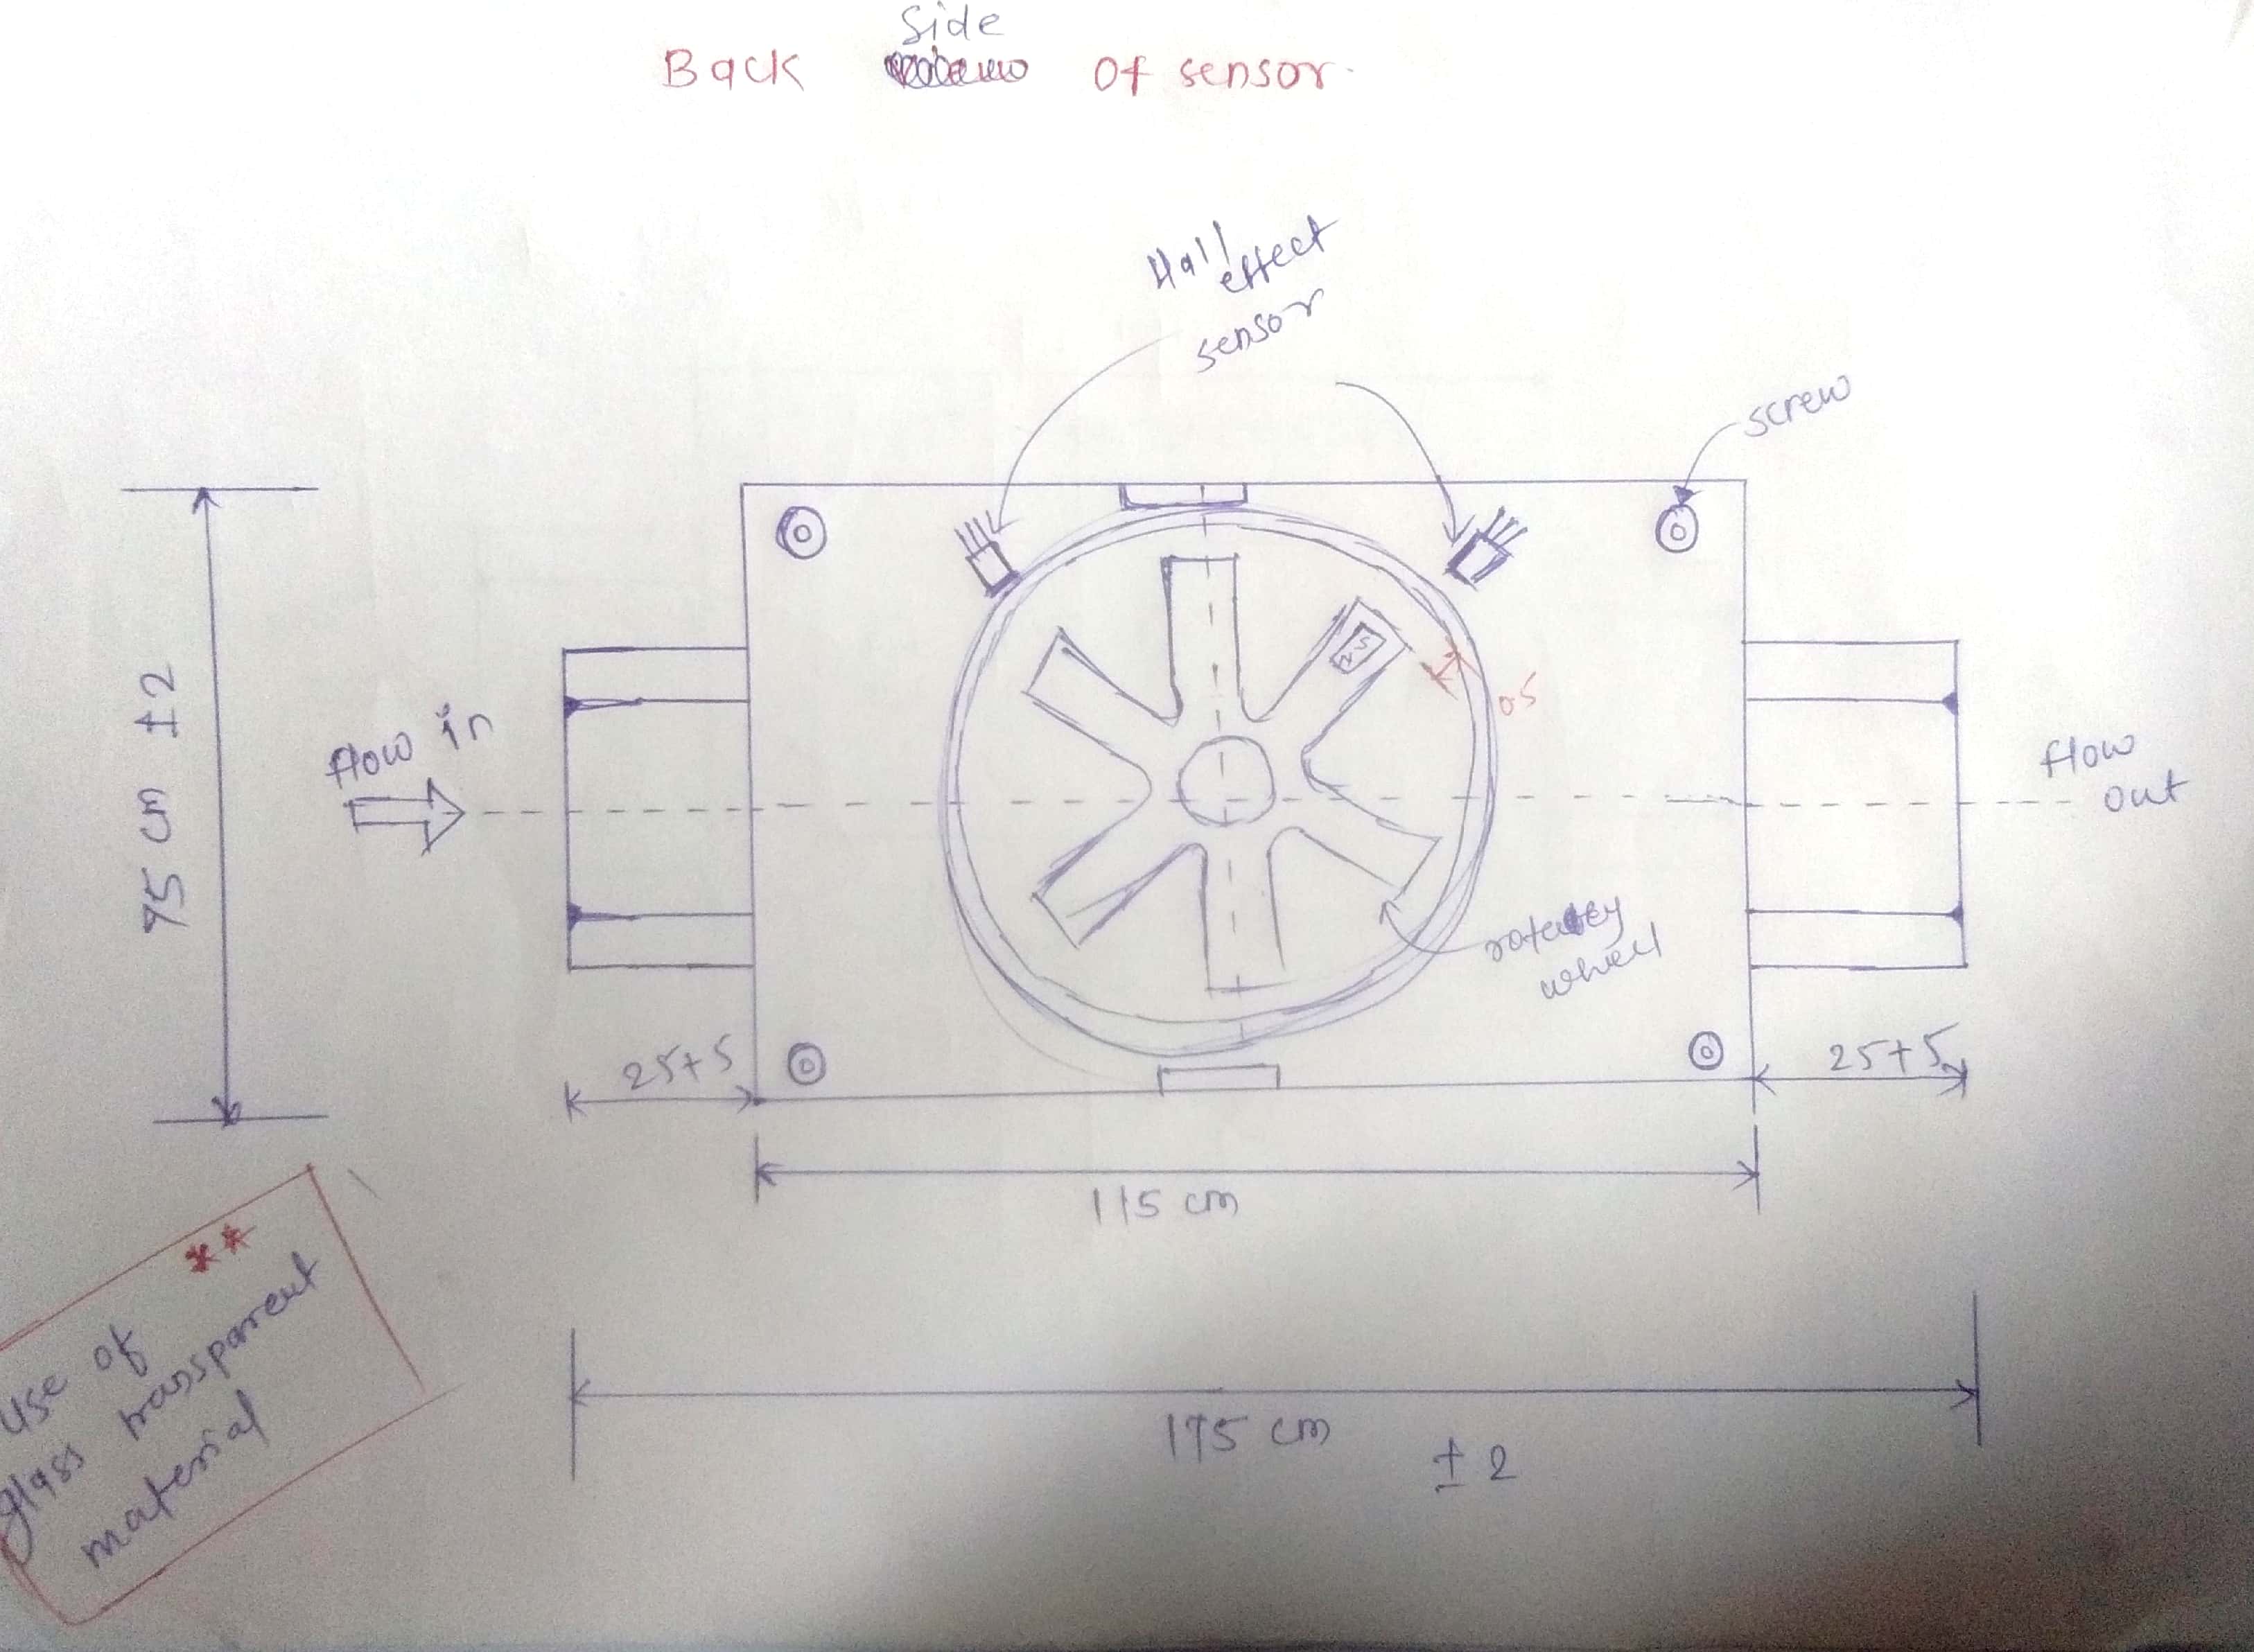 Side
Back Of sensor.
Hall effect
sensor
screw
0.5
75 cm ±2
flow in
flow
out
wheel
25+5
25+5
115 cm
175 cm
±2
**
use of
glass transparent
material